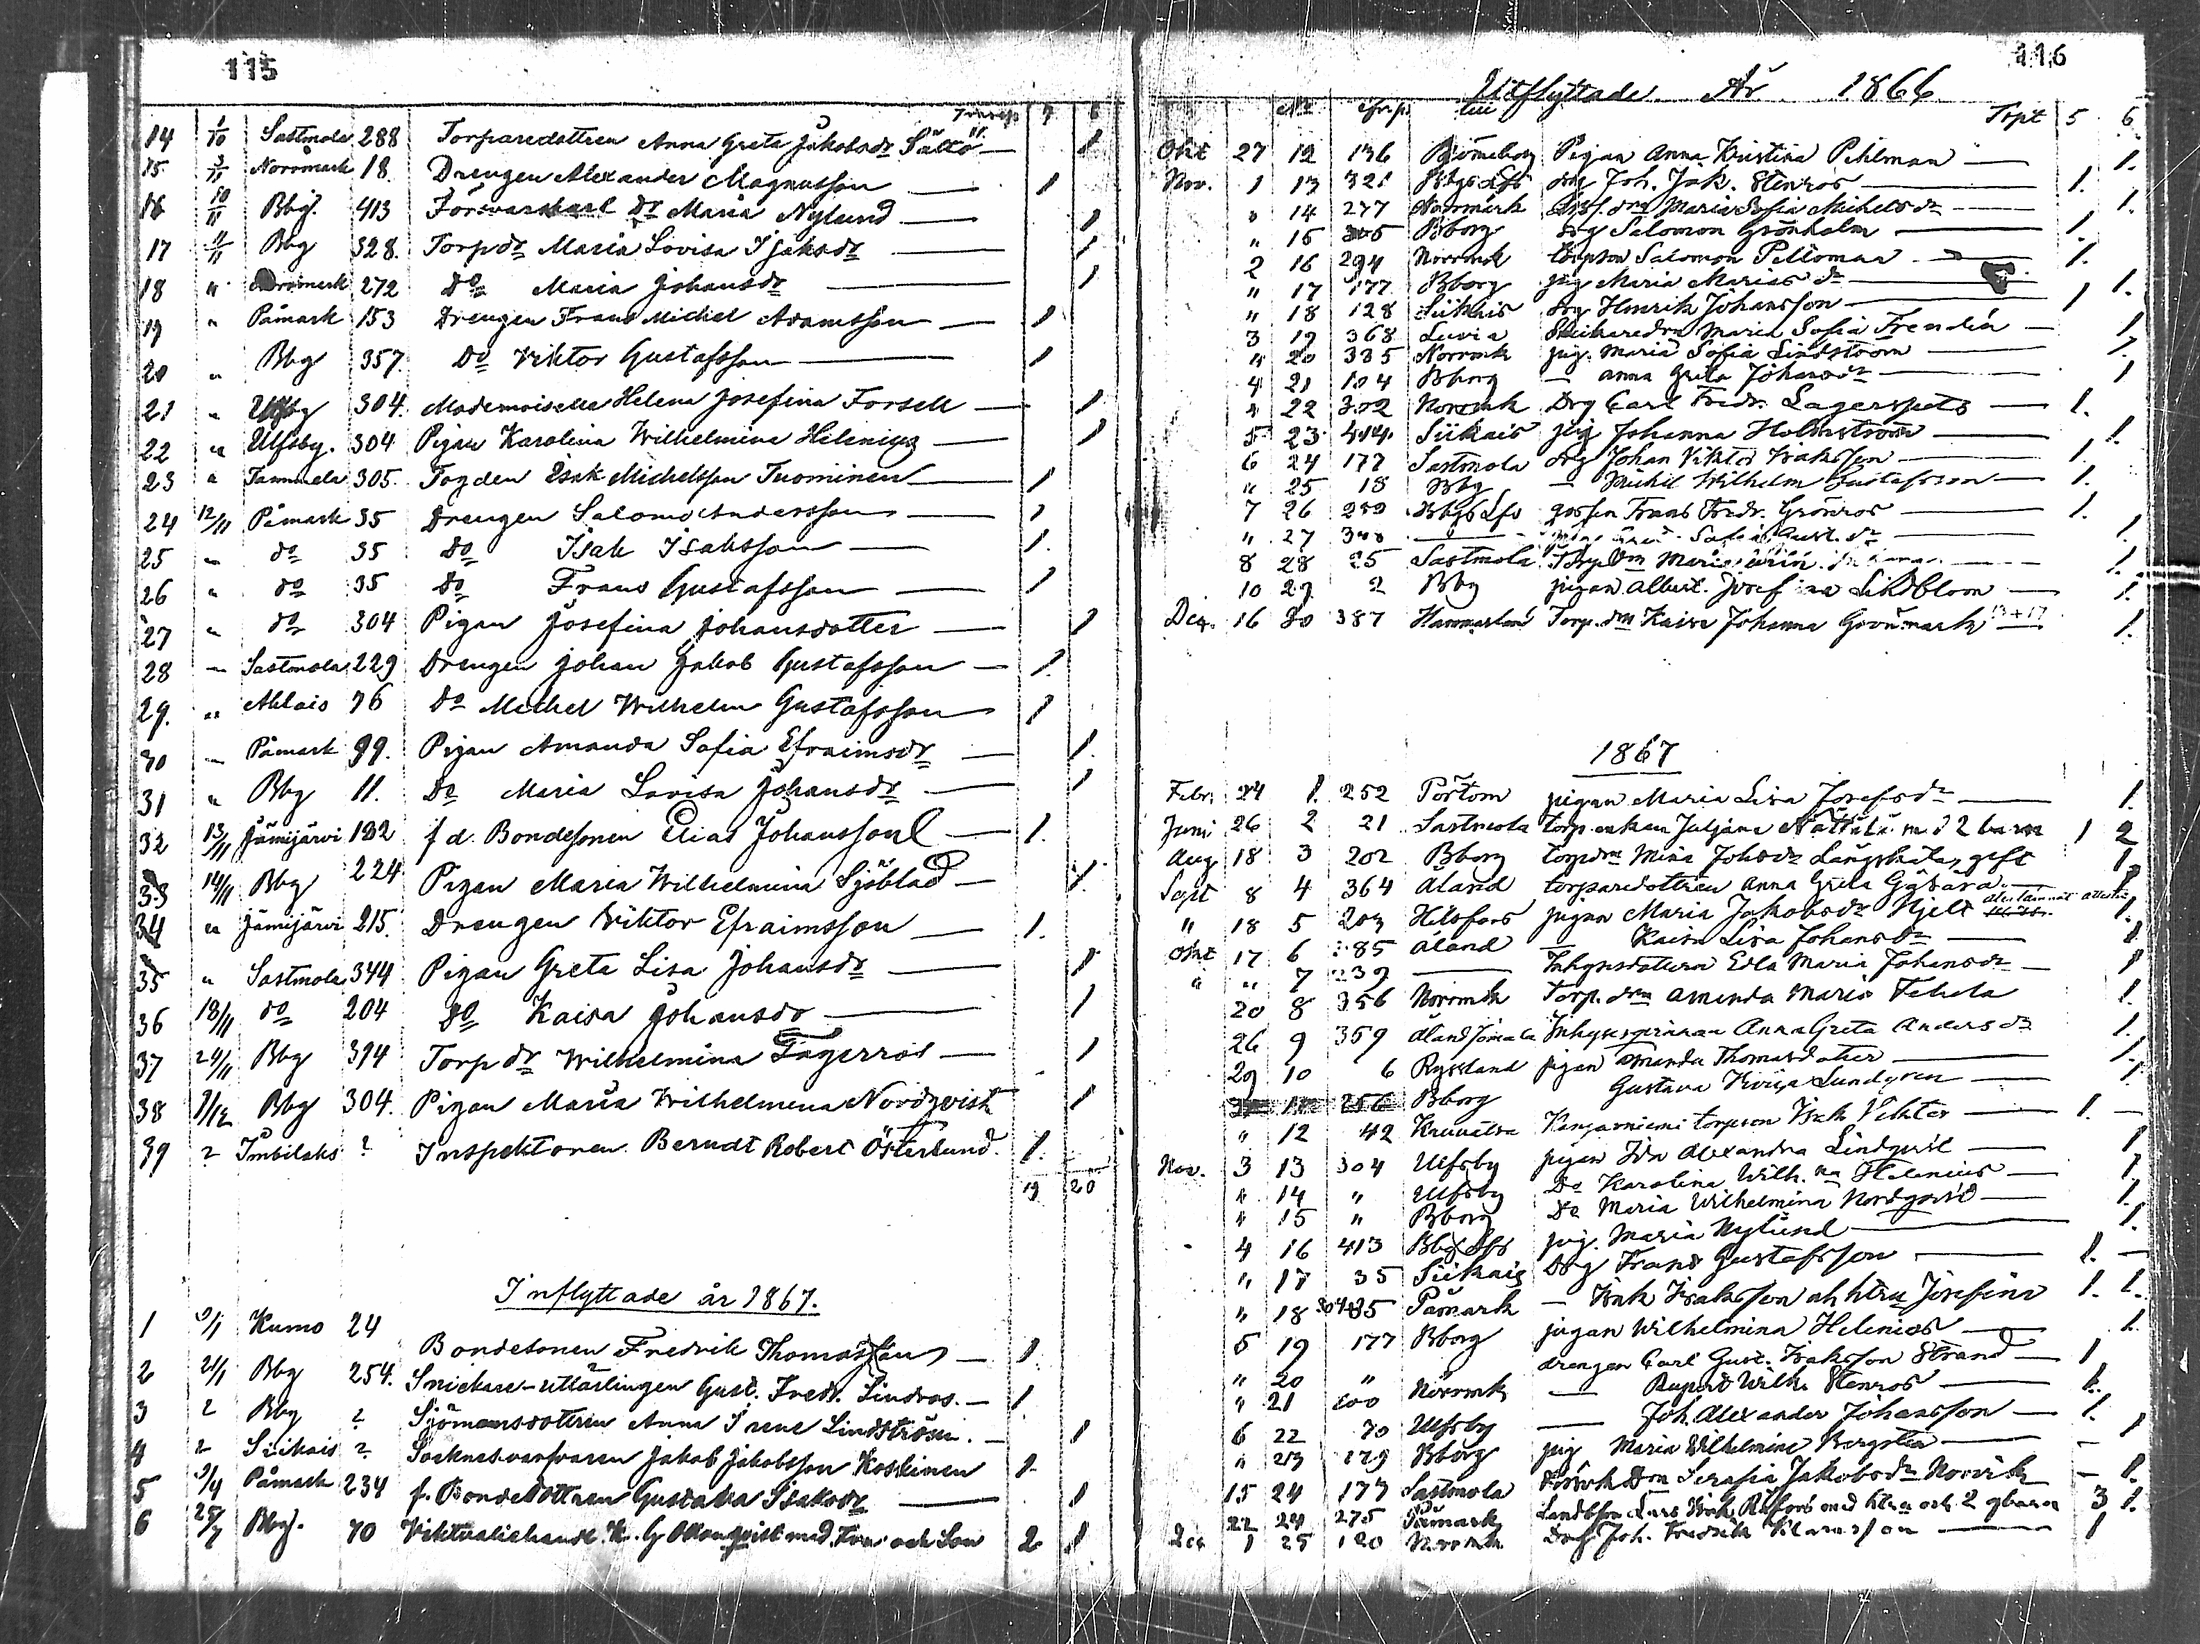 115
14 1/10 Sastmola 288 Torparedottren Anna Greta Jakobsdr Sältö — 1
15. 3/11 Norrmark 18. Drengen Alexander Magnusson — 1
16 10/11 Bbg. 413 Försvarskarl dr Maria Nylund — 1
17 11/11 Bbg 328. Torpdr Maria Lovisa Isaksdr — 1
18 " Norrmark 272 Do Maria Johansdr — 1
19 " Påmark 153 Drengen Frans Michel Adamsson — 1
20 " Bbg 357. Do Viktor Gustafsson — 1
21 " Ulfsby 304. Mademoiselle Helena Josefina Forsell — 1
22 " Ulfsby. 304 Pigan Karolina Wilhelmina Helenius — 1
23 " Tammela 305. Fogden Isak Michelsson Tuominen — 1
24 12/11 Påmark 35 Drengen Salomo Andersson — 1
25 " do 35 do Isak Isaksson — 1.
26 " do 35 do Frans Gustafsson — 1
27 " do 304 Pigan Josefina Johansdotter — 1
28 " Sastmola 229 Drengen Johan Jakob Gustafsson — 1.
29. " Ahlais 76 do Michel Wilhelm Gustafsson — 1
30 " Påmark 99. Pigan Amanda Sofia Efraimsdr — 1.
31 " Bbg 11. Do Maria Lovisa Johansdr — 1
32 13/11 Jämijärvi 132 f d. Bondesonen Elias Johansson — 1.
33 14/11 Bbg 224 Pigan Maria Wilhelmina Sjöblad — 1.
34 " Jämijärvi 215. Drengen Viktor Efraimsson — 1.
35 " Sastmola 344 Pigan Greta Lisa Johansdr — 1
36 18/11 do 204 do Kaisa Johansdr — 1
37 24/11 Bbg 394 Torpdr Wilhelmina Fagerros — 1
38 9/12 Bbg 304. Pigan Maria Wilhelmina Nordqvist 1
39 ? Imbilaks ? Inspektoren Berndt Robert Österlund. 1.
19 20
Inflyttade år 1867.
1 9/1 Kumo 24 Bondesonen Fredrik Thomasson — 1
2 21/1 Bbg 254. Snickare-utlärlingen Gust. Fredr. Lindros. — 1
3 ? Bbg ? Sjömansdottren Anna Irene Lindström. — 1
4 ? Siikais ? Jakob Jakobsson Koskinen 1.
5 9/4 Påmark 234 f. Bondedottren Gustava Isaksdr — 1
6 25/7 Bbg. 70 med fru och Son 2 1
116
Utflyttade År 1866
No Torpt 5 6
Okt 27 12 136 Björneborg Pigan Anna Kristina Pihlman — 1.
Nov. 1 13 321 Bbgs Lfs drg Joh. Jak. Stenros — 1.
" 14 277 Norrmark Maria Sofia Michelsdr — 1.
" 15 Bborg drg Salomon Grönholm — 1.
2 16 294 Norrmk torpson Salomon Peltomaa — 1.
" 17 177 Bborg pig Maria Mariasdr — 1.
" 18 128 Siikais drg Henrik Johansson — 1
3 19 368 Luvia Maria Sofia — 1
" 20 335 Norrmk pig. Maria Sofia Lindstroom — 1.
4 21 104 Bborg — Anna Greta Johansdr — 1
" 22 302 Norrmk Drg Carl Fredr. Lagerspets — 1.
5 23 414. Siikais pig Johanna Holmström — 1.
6 24 177 Sastmola drg Johan Viktor Isaksson — 1.
" 25 18 Bbg — Michel Wilhelm Gustafsson — 1.
7 26 Bbgs Lfs gossen Frans Fredr. Grönros — 1.
" 27 — Sofia Gust. dr 1.
8 28 25 Sastmola Torp drn Maria 1.
10 29 2 Bbg pigan Albert. Josefina Lindbloom — 1.
Dec. 16 30 387 Hammarland Torp. drn Kaisa Johanna Grönmark 13+17 1.
1867
Febr. 24 1. 252 Pörtom pigan Maria Lisa Josefsdr — 1.
Juni 26 2 21 Sastmola torp. enkan Juljana med 2 barn 1 2
Aug 18 3 202 Bborg torpdrn Mina Johsdr gift 1.
Sept 8 4 364 Åland torparedottren Anna Greta 1
" 18 5 203 Hlsfors pigan Maria Jakobsdr Hjelt 1.
Okt 17 6 Åland — Kaisa Lisa Johansdr — 1
" " 7 239 — Inhysdottern Edla Maria Johansdr — 1
20 8 356 Norrmk Torp. drn Amanda Maria 1.
26 9 359 Åland Jomala Inhysespigan Anna Greta Andersdr 1.
29 10 6 Ryssland pigan Amanda Thomasdotter — 1.
Bborg Gustava Lovisa Lundgren — 1
" 12 42 torpson Isak Viktor — 1. —
Nov. 3 13 304 Ulfsby pigan Ida Alexandra Lindqvist — 1
" 14 " Ulfsby Do Karolina Wilh.na Helenius — 1.
" 15 " Bborg Do Maria Wilhelmina Nordqvist — 1.
4 16 413 Bbgs Lfs pig. Maria Nylund — 1.
" 17 35 Siikais Drg Frans Gustafsson — 1. —
" 18 Påmark — Isak Isaksson och htru Josefina 1. 1.
5 19 177 Bborg pigan Wilhelmina Helenius — 1.
" 20 " drengen Carl Gust. Isaksson Strand — 1
" 21 Norrmk — Rupert Wilh. Stenros — 1.
6 22 70 Ulfsby — Joh. Alexander Johansson — 1.
" 23 179 Bborg pig Maria Wilhelmina Bergsten — 1
15 24 177 Sastmola Serafia Jakobsdr Norvik — 1.
22 24 275 Påmark Lars Isak med htru och 2 gbarn 3 1.
Dec 1 25 120 Norrmk Drg Joh. Fredrik — 1